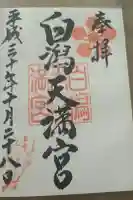 奉拝
白潟天満宮
平成三十年十月二十八日